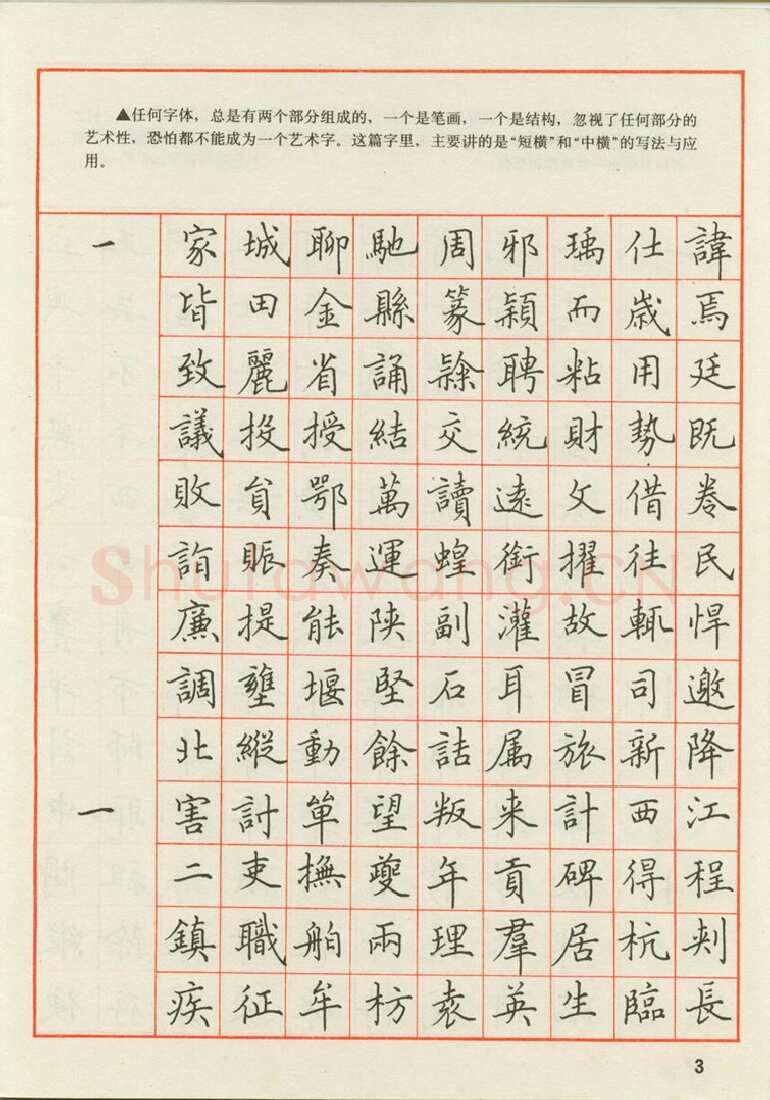 ▲任何字体，总是有两个部分组成的，一个是笔画，一个是结构，忽视了任何部分的
艺术性，恐怕都不能成为一个艺术字。这篇字里，主要讲的是“短横”和“中横”的写法与应
用。
諱焉廷既卷民悍邀降江程剌長
仕歳用勢借往輒司新西得杭臨
瑀而粘財文擢故冒旅計碑居生
邪穎聘統遠銜灌耳属来貢羣英
周篆隸交讀蝗副石詰叛年理袁
馳縣誦結萬運陜堅餘望夔兩枋
聊金省授鄂奏能堰動單撫舶牟
城田麗投貟賑提壅縱討吏職征
家皆致議敗詣廉調北害二鎮疾
一
一
3
Shufawang.CN